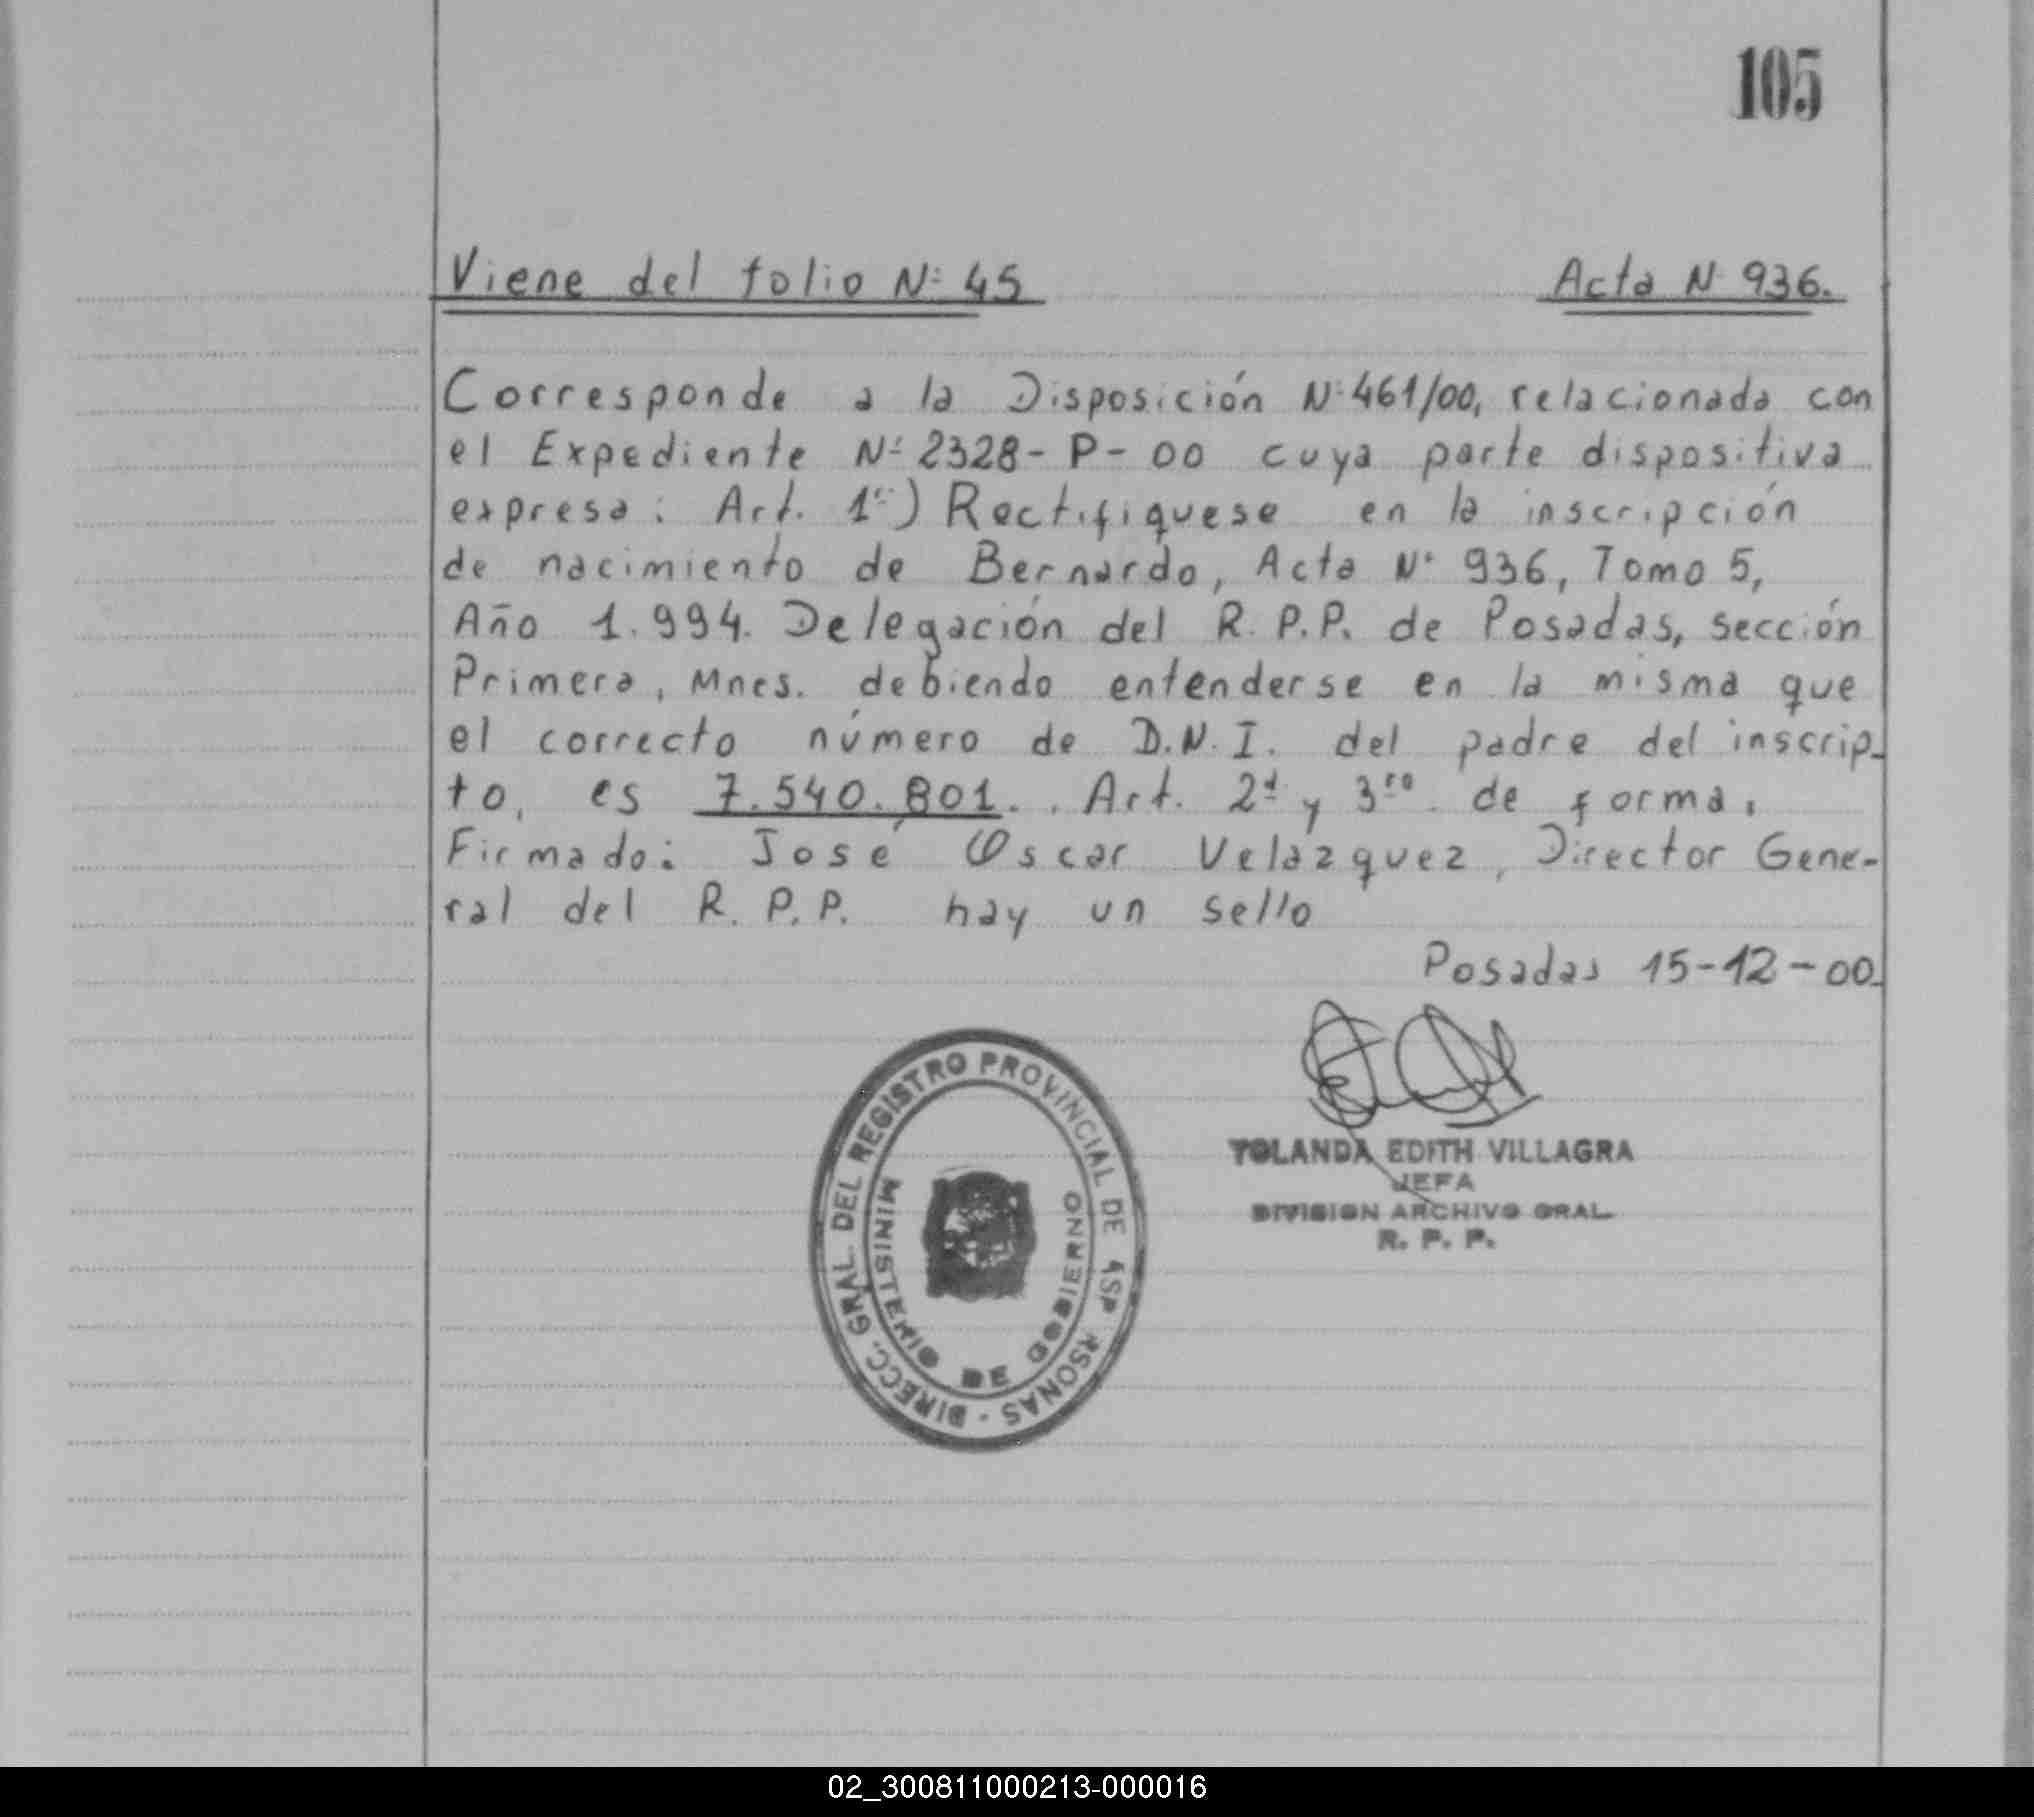 105
Viene del folio Nº 45
Acta Nº 936.
Corresponde a la Disposición Nº 461/00, relacionada con
el Expediente Nº 2328-P-00 cuya parte dispositiva
expresa: Art. 1º) Rectifiquese en la inscripción
de nacimiento de Bernardo, Acta Nº 936, Tomo 5,
Año 1.994. Delegación del R.P.P. de Posadas, sección
Primera, Mnes. debiendo entenderse en la misma que
el correcto número de D.N.I. del padre del inscrip-
to, es 7.540.801.. Art. 2º y 3ro de forma.
Firmado: José Oscar Velazquez, Director Gene-
ral del R.P.P. hay un sello
Posadas 15-12-00
DIRECC. GRAL. DEL REGISTRO PROVINCIAL DE RSONAS -
MINISTERIO DE GOBIERNO
YOLANDA EDITH VILLAGRA
JEFA
DIVISION ARCHIVO GRAL
R. P. P.
02_300811000213-000016